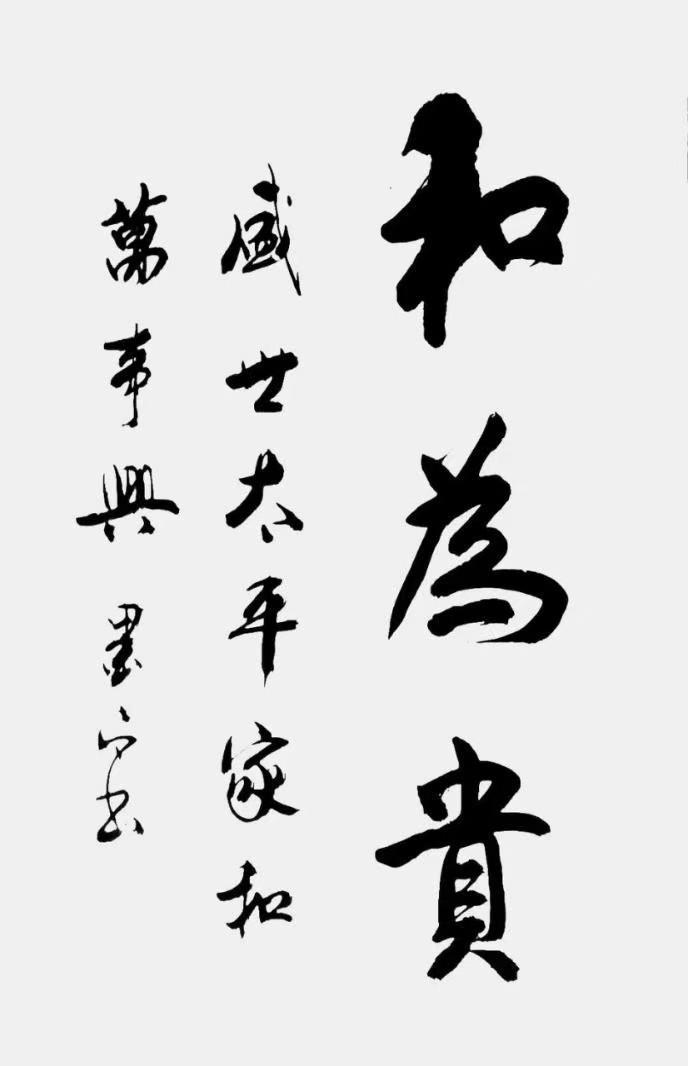 和為貴
盛世太平家和
萬事興 墨 書